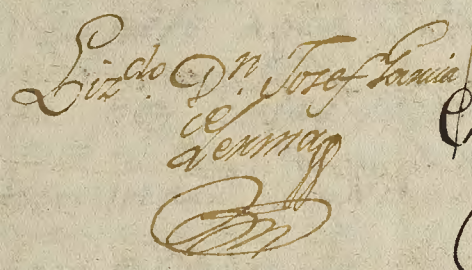 Lizdo. Dn. Josef Garcia
de
Lerma